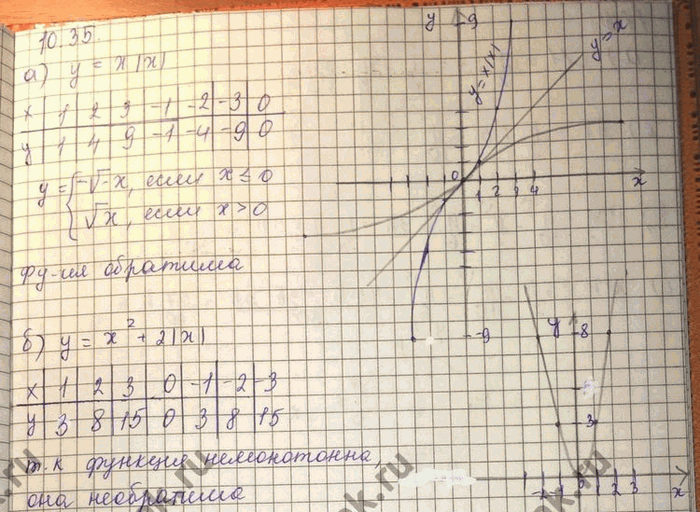 10.35.
а) y = x|x|
x | 1 | 2 | 3 | -1 | -2 | -3 | 0
y | 1 | 4 | 9 | -1 | -4 | -9 | 0
y = { -√-x, если x ≤ 0
√x, если x > 0
фу-ия обратима
y 9
y=x|x|
y=x
0 1 2 3 4 x
-9
б) y = x² + 2|x|
x | 1 | 2 | 3 | 0 | -1 | -2 | -3
y | 3 | 8 | 15 | 0 | 3 | 8 | 15
т.к функция немонотонна,
она необратима
y 8
3
-2 -1 0 1 2 3 x